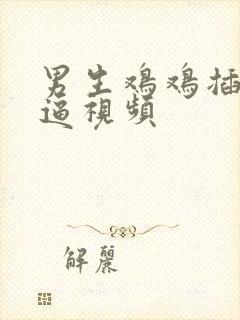 男生鸡鸡插
逼視頻
解麗